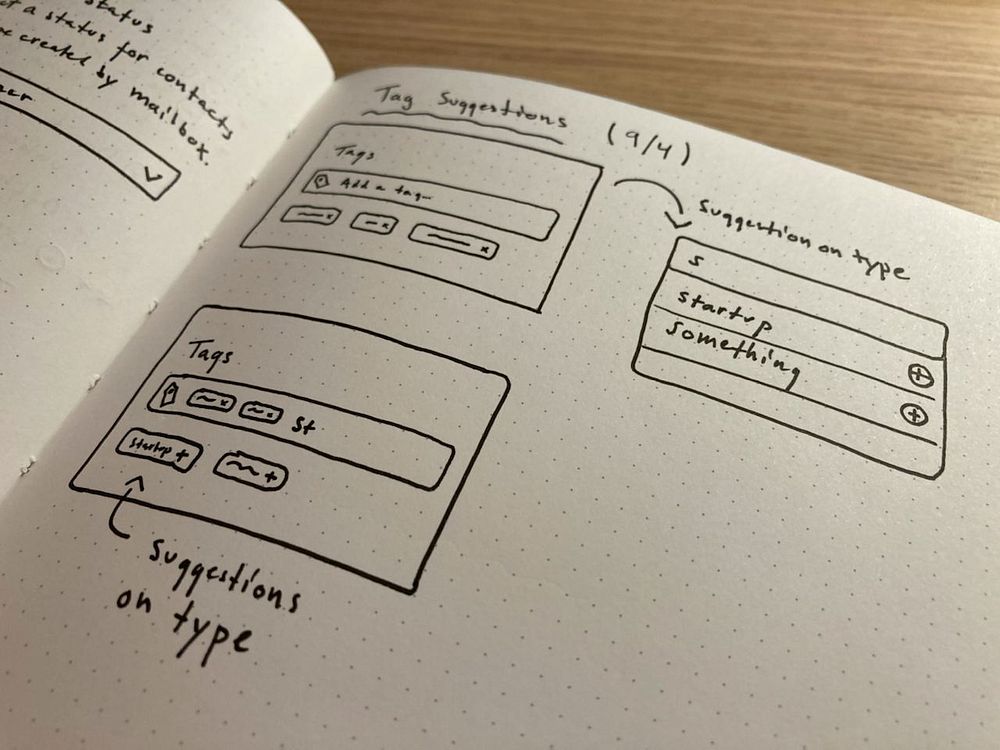 status
a status for contacts
created by mailbox.
Tag Suggestions (9/4)
Tags
Add a tag...
Suggestion on type
s
startup
something
Tags
st
startup +
+
suggestions
on type